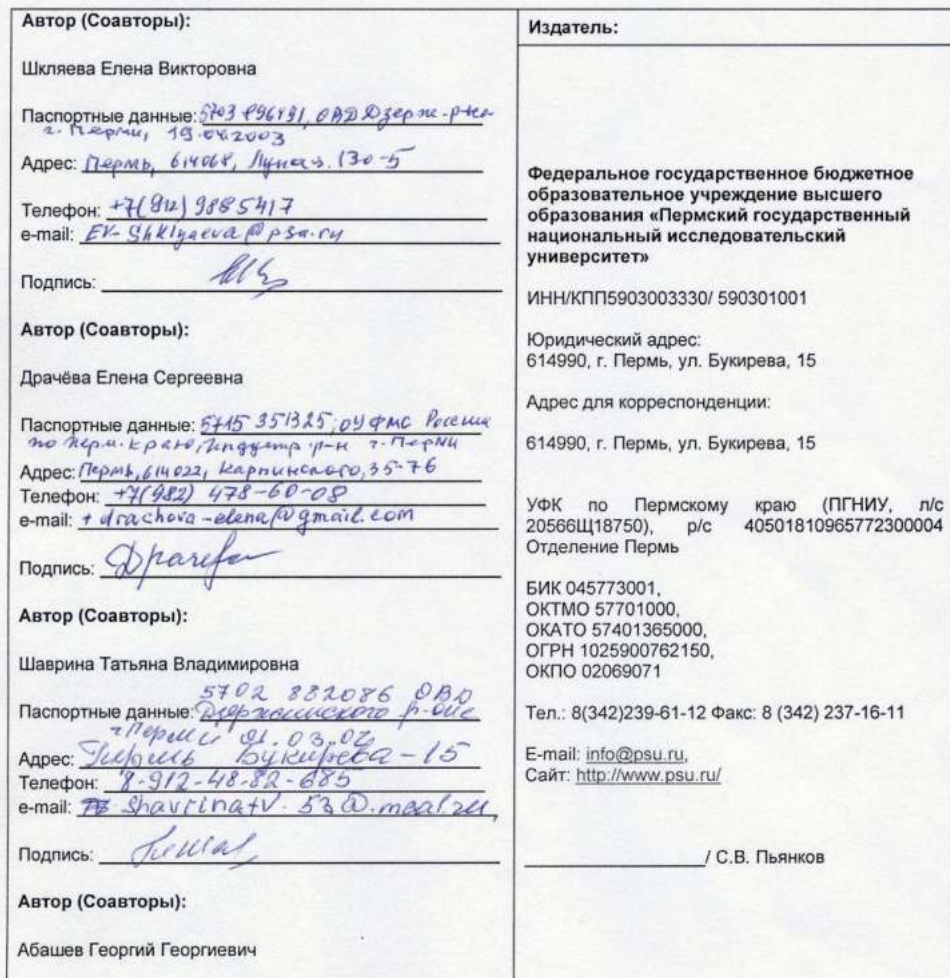 Автор (Соавторы):
Шкляева Елена Викторовна
Паспортные данные: 5703 896491, ОВД Дзерж. р-на
г. Перми, 19.04.2003
Адрес: Пермь, 614068, Лунач. 130-5
Телефон: +7(912) 9885417
e-mail: EV-Shklyaeva@psu.ru
Подпись:
Автор (Соавторы):
Драчёва Елена Сергеевна
Паспортные данные: 5715 351325, ОУФМС России
по Перм. краю, Индустр. р-н г. Перми
Адрес: Пермь, 614022, Карпинского, 35-76
Телефон: +7(982) 478-60-08
e-mail: drachova-elena@gmail.com
Подпись:
Автор (Соавторы):
Шаврина Татьяна Владимировна
5702 882086 ОВД
Паспортные данные: Дзержинского р-она
г. Перми 21.03.02
Адрес: Пермь Букирева-15
Телефон: 8-912-48-82-685
e-mail: shavrinatv.53@mail.ru,
Подпись:
Автор (Соавторы):
Абашев Георгий Георгиевич
Издатель:
Федеральное государственное бюджетное
образовательное учреждение высшего
образования «Пермский государственный
национальный исследовательский
университет»
ИНН/КПП5903003330/ 590301001
Юридический адрес:
614990, г. Пермь, ул. Букирева, 15
Адрес для корреспонденции:
614990, г. Пермь, ул. Букирева, 15
УФК по Пермскому краю (ПГНИУ, л/с
20566Щ18750), р/с 40501810965772300004
Отделение Пермь
БИК 045773001,
ОКТМО 57701000,
ОКАТО 57401365000,
ОГРН 1025900762150,
ОКПО 02069071
Тел.: 8(342)239-61-12 Факс: 8 (342) 237-16-11
E-mail: info@psu.ru,
Сайт: http://www.psu.ru/
/ С.В. Пьянков